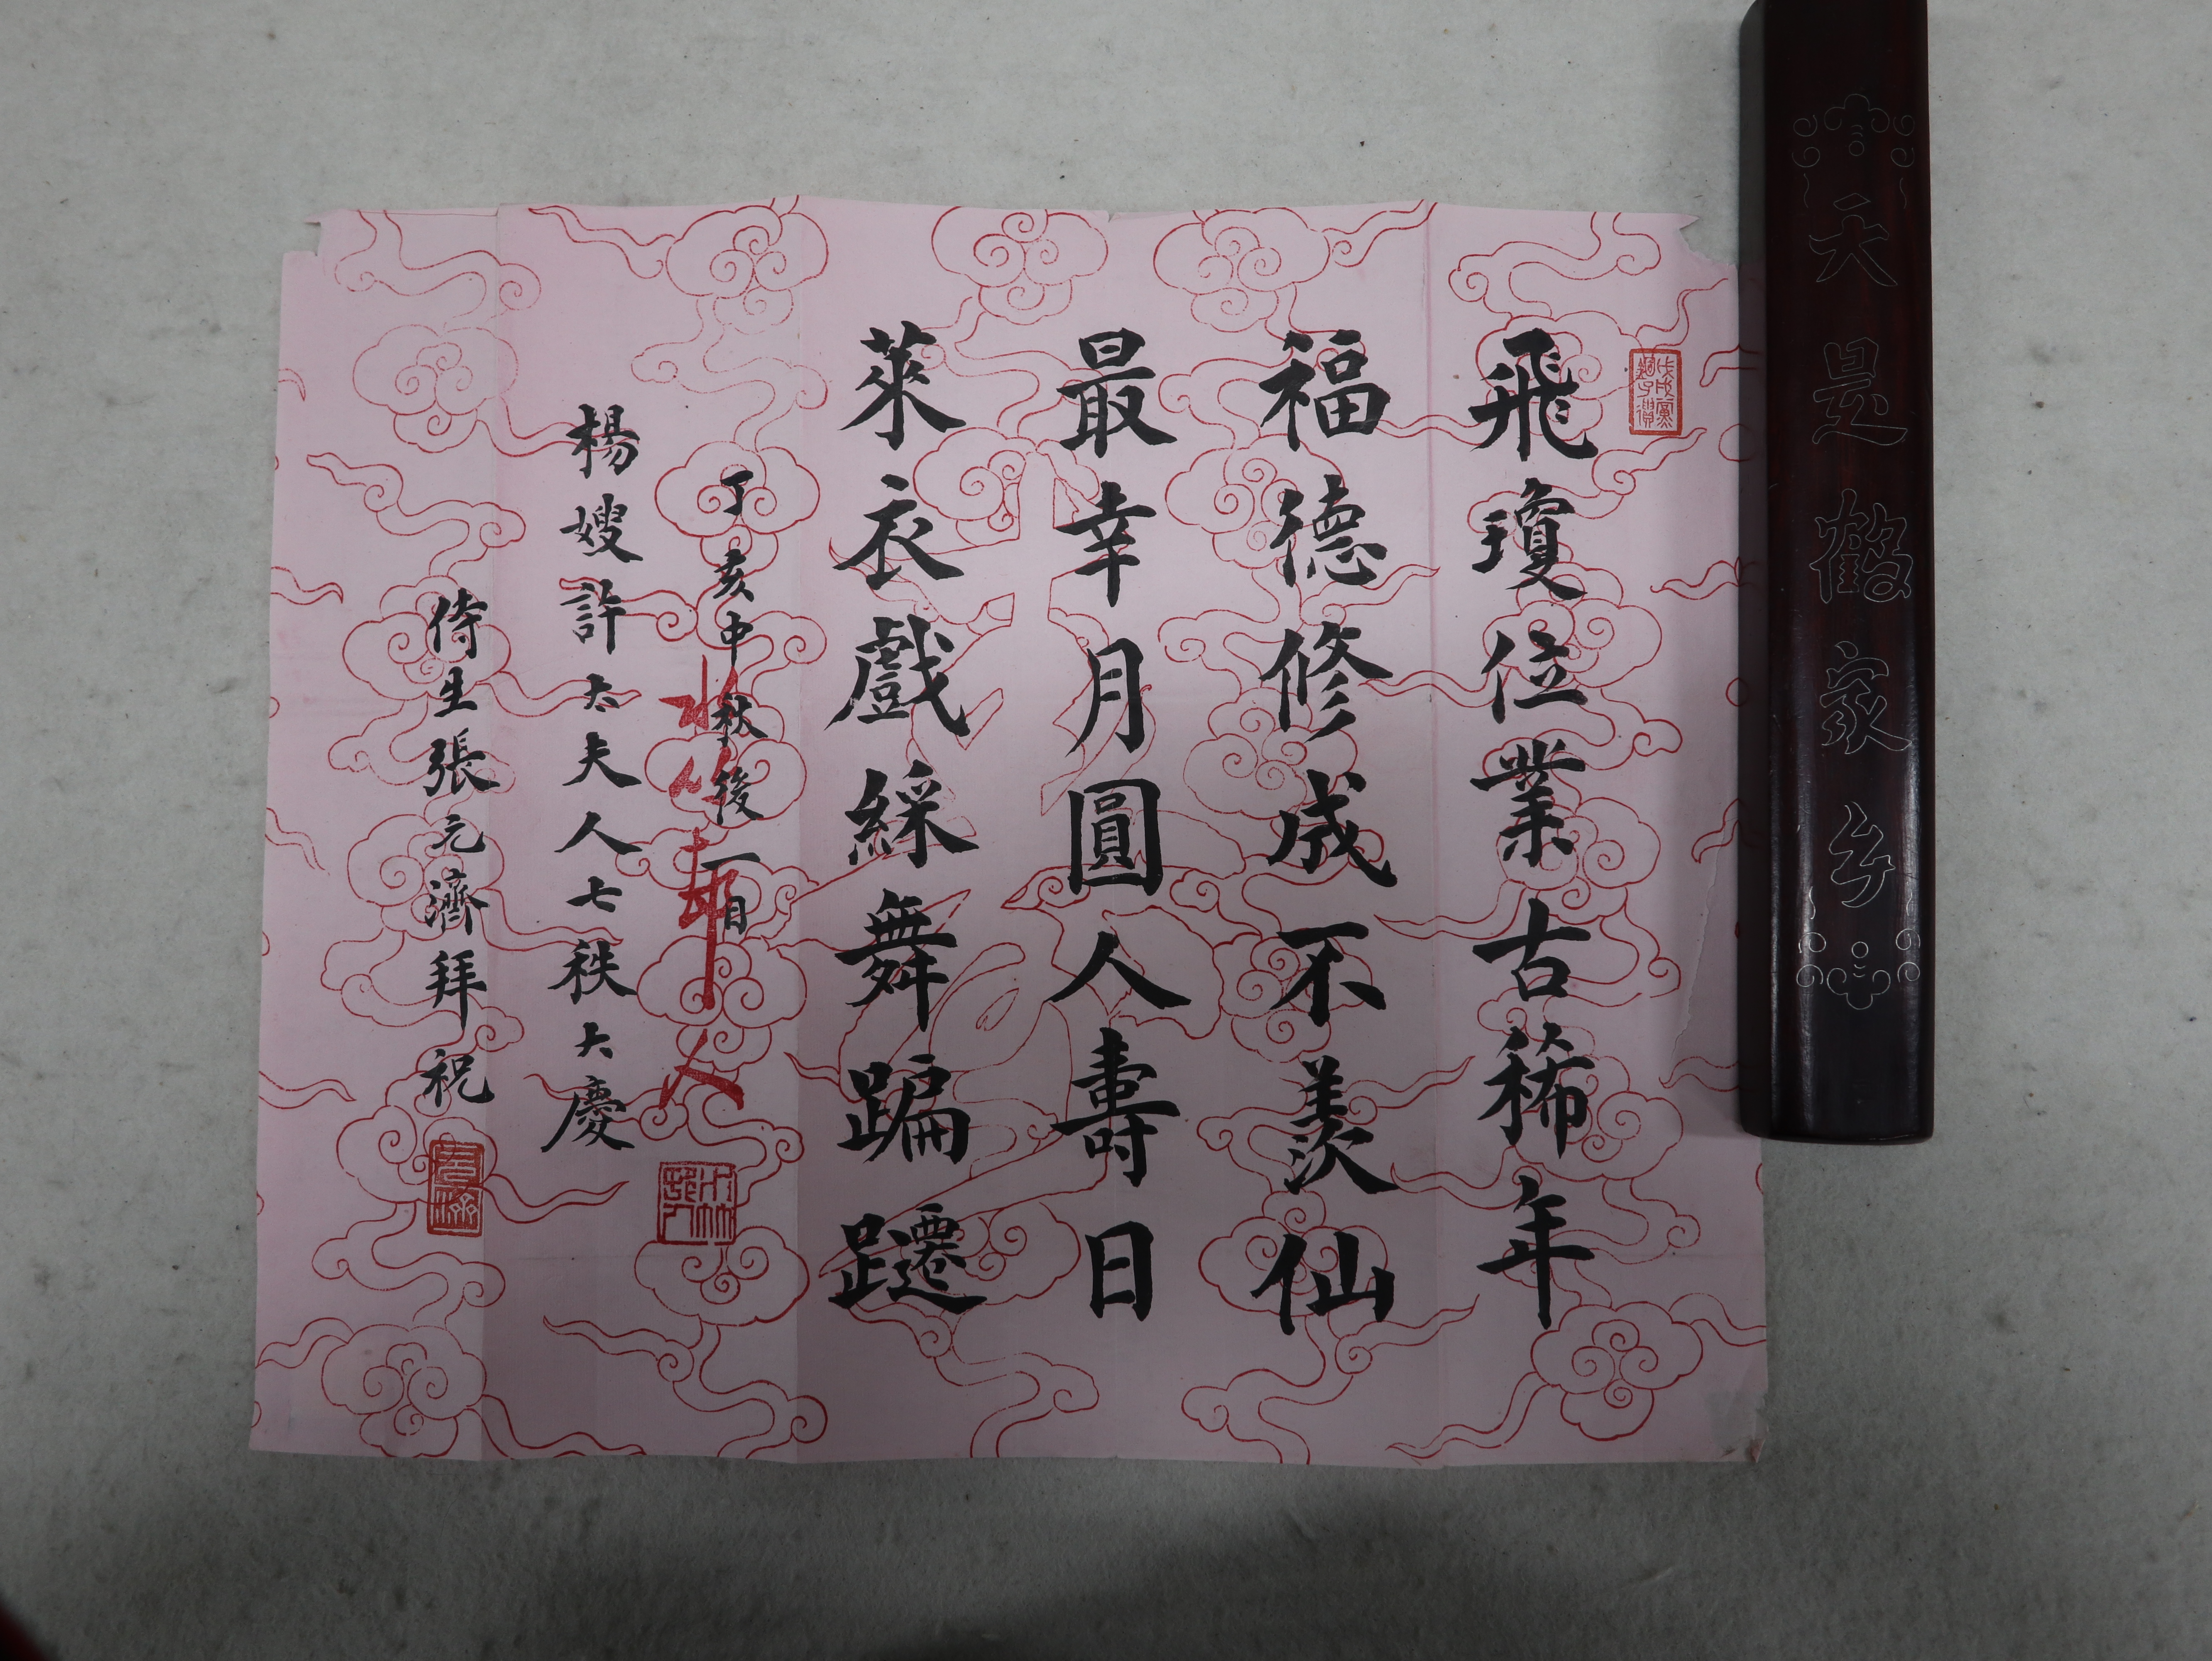 飛瓊位業古稀年
福德修成不羨仙
最幸月圓人壽日
萊衣戲綵舞蹁躚
丁亥中秋後一日
楊嫂許太夫人七秩大慶
侍生張元濟拜祝
戊戌黨錮子遺
元濟
天是鶴家乡